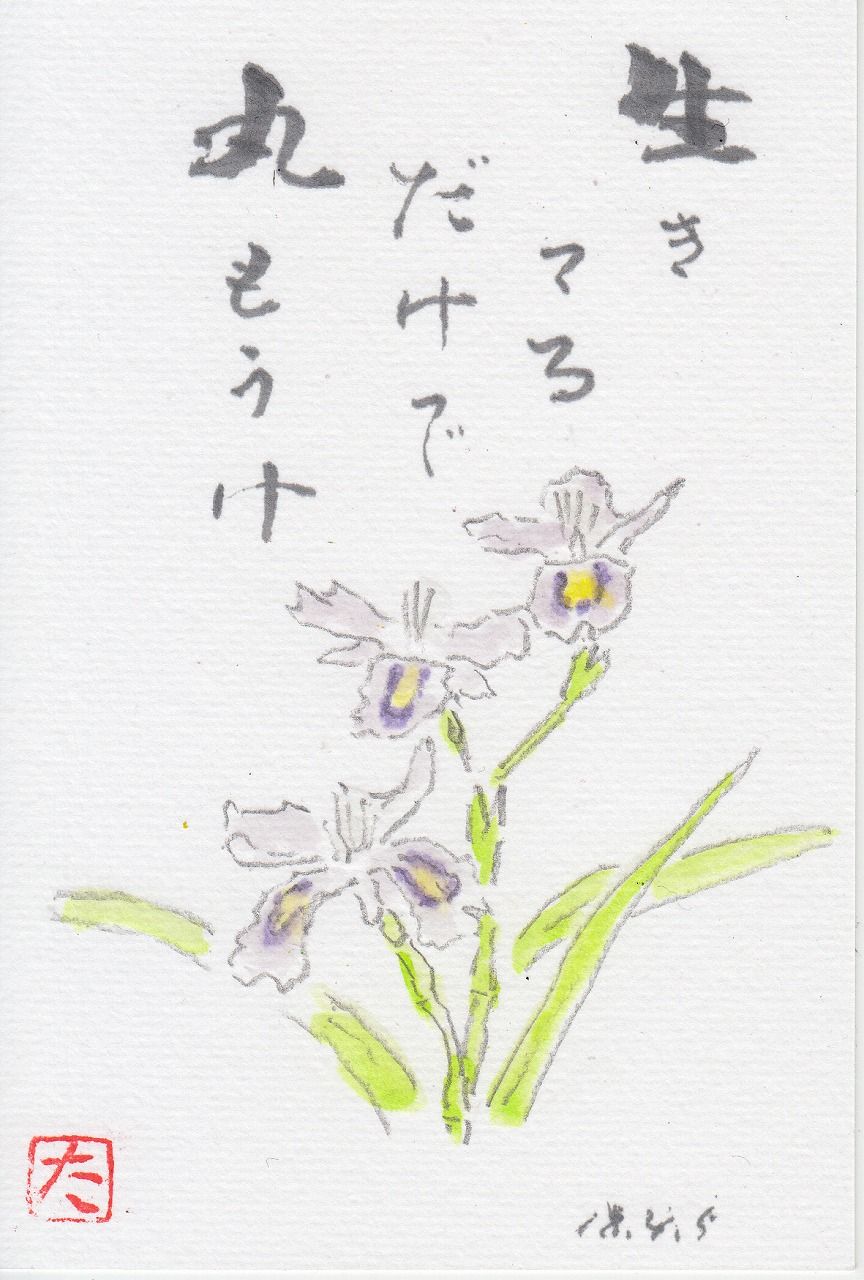 生き
てる
だけで
丸もうけ
18.4.5
た